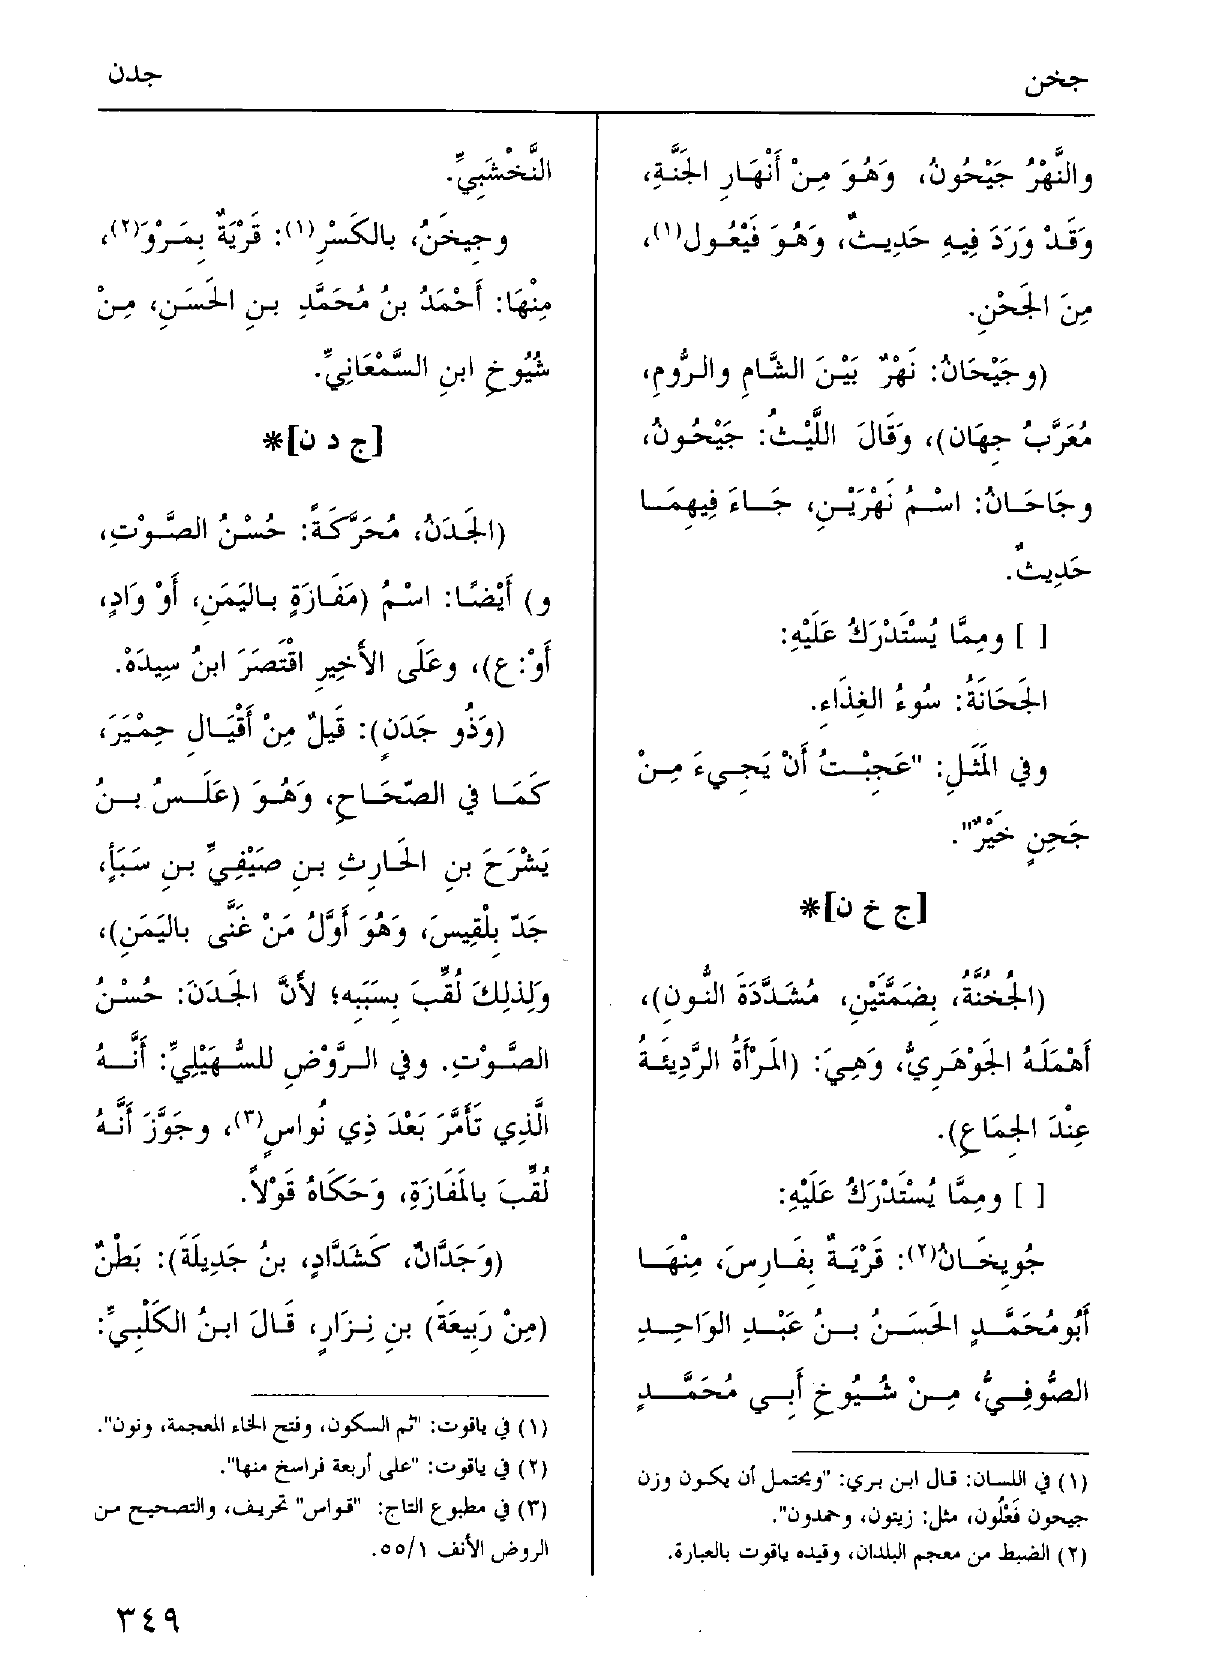 جخن
جدن
والنَّهْرُ جَيْحُونُ، وَهُوَ مِنْ أَنْهَارِ الجَنَّةِ،
وَقَدْ وَرَدَ فِيهِ حَدِيثٌ، وَهُوَ فَيْعُول(١)،
مِنَ الجَحْنِ.
(وجَيْحَانُ: نَهْرٌ بَيْنَ الشَّامِ والرُّومِ،
مُعَرَّبُ جِهَان)، وَقَالَ اللَّيْثُ: جَيْحُونُ،
وجَاحَانُ: اسْمُ نَهْرَيْنِ، جَاءَ فِيهِمَا
حَدِيثٌ.
[ ] ومِمَّا يُسْتَدْرَكُ عَلَيْهِ:
الجَحَانَةُ: سُوءُ الغِذَاءِ.
وفي المَثَلِ: "عَجِبْتُ أَنْ يَجِيءَ مِنْ
جَحِنٍ خَيْرٌ".
[ج خ ن]*
(الجُخُنَّةُ، بِضَمَّتَيْنِ، مُشَدَّدَةَ النُّونِ)،
أَهْمَلَهُ الجَوْهَرِيُّ، وَهِيَ: (المَرْأَةُ الرَّدِيئَةُ
عِنْدَ الجِمَاعِ).
[ ] ومِمَّا يُسْتَدْرَكُ عَلَيْهِ:
جُويخَانُ(٢): قَرْيَةٌ بِفَارِسَ، مِنْهَا
أَبُومُحَمَّدٍ الحَسَنُ بنُ عَبْدِ الوَاحِدِ
الصُّوفِيُّ، مِنْ شُيُوخِ أَبِي مُحَمَّدٍ
(١) في اللسان: قال ابن بري: "ويحتمل أن يكون وزن
جيحون فَعْلُون، مثل: زيتون، وحمدون".
(٢) الضبط من معجم البلدان، وقيده ياقوت بالعبارة.
النَّخْشَبِيِّ.
وجِيخَنُ، بالكَسْرِ(١): قَرْيَةٌ بِمَرْوَ(٢)،
مِنْهَا: أَحْمَدُ بنُ مُحَمَّدِ بنِ الحَسَنِ، مِنْ
شُيُوخِ ابنِ السَّمْعَانِيِّ.
[ج د ن]*
(الجَدَنُ، مُحَرَّكَةً: حُسْنُ الصَّوْتِ،
و) أَيْضًا: اسْمُ (مَفَازَةٍ بِاليَمَنِ، أَوْ وَادٍ،
أَوْ: ع)، وعَلَى الأَخِيرِ اقْتَصَرَ ابنُ سِيدَهْ.
(وَذُو جَدَنٍ): قَيلٌ مِنْ أَقْيَالِ حِمْيَرَ،
كَمَا في الصِّحَاحِ، وَهُوَ (عَلَسُ بنُ
يَشْرَحَ بنِ الحَارِثِ بنِ صَيْفِيِّ بنِ سَبَأٍ،
جَدّ بِلْقِيسَ، وَهُوَ أَوَّلُ مَنْ غَنَّى بِاليَمَنِ)،
ولِذلِكَ لُقِّبَ بِسَبَبِهِ؛ لأَنَّ الجَدَنَ: حُسْنُ
الصَّوْتِ. وفي الرَّوْضِ للسُّهَيْلِيِّ: أَنَّهُ
الَّذِي تَأَمَّرَ بَعْدَ ذِي نُواسٍ(٣)، وجَوَّزَ أَنَّهُ
لُقِّبَ بالمَفَازَةِ، وَحَكَاهُ قَوْلاً.
(وَجَدَّانُ، كَشَدَّادٍ، بنُ جَدِيلَةَ): بَطْنٌ
(مِنْ رَبِيعَةَ) بنِ نِزَارٍ، قَالَ ابنُ الكَلْبِيِّ:
(١) في ياقوت: "ثم السكون، وفتح الخاء المعجمة، ونون".
(٢) في ياقوت: "على أربعة فراسخ منها".
(٣) في مطبوع التاج: "قواس" تحريف، والتصحيح من
الروض الأنف ٥٥/١.
٣٤٩